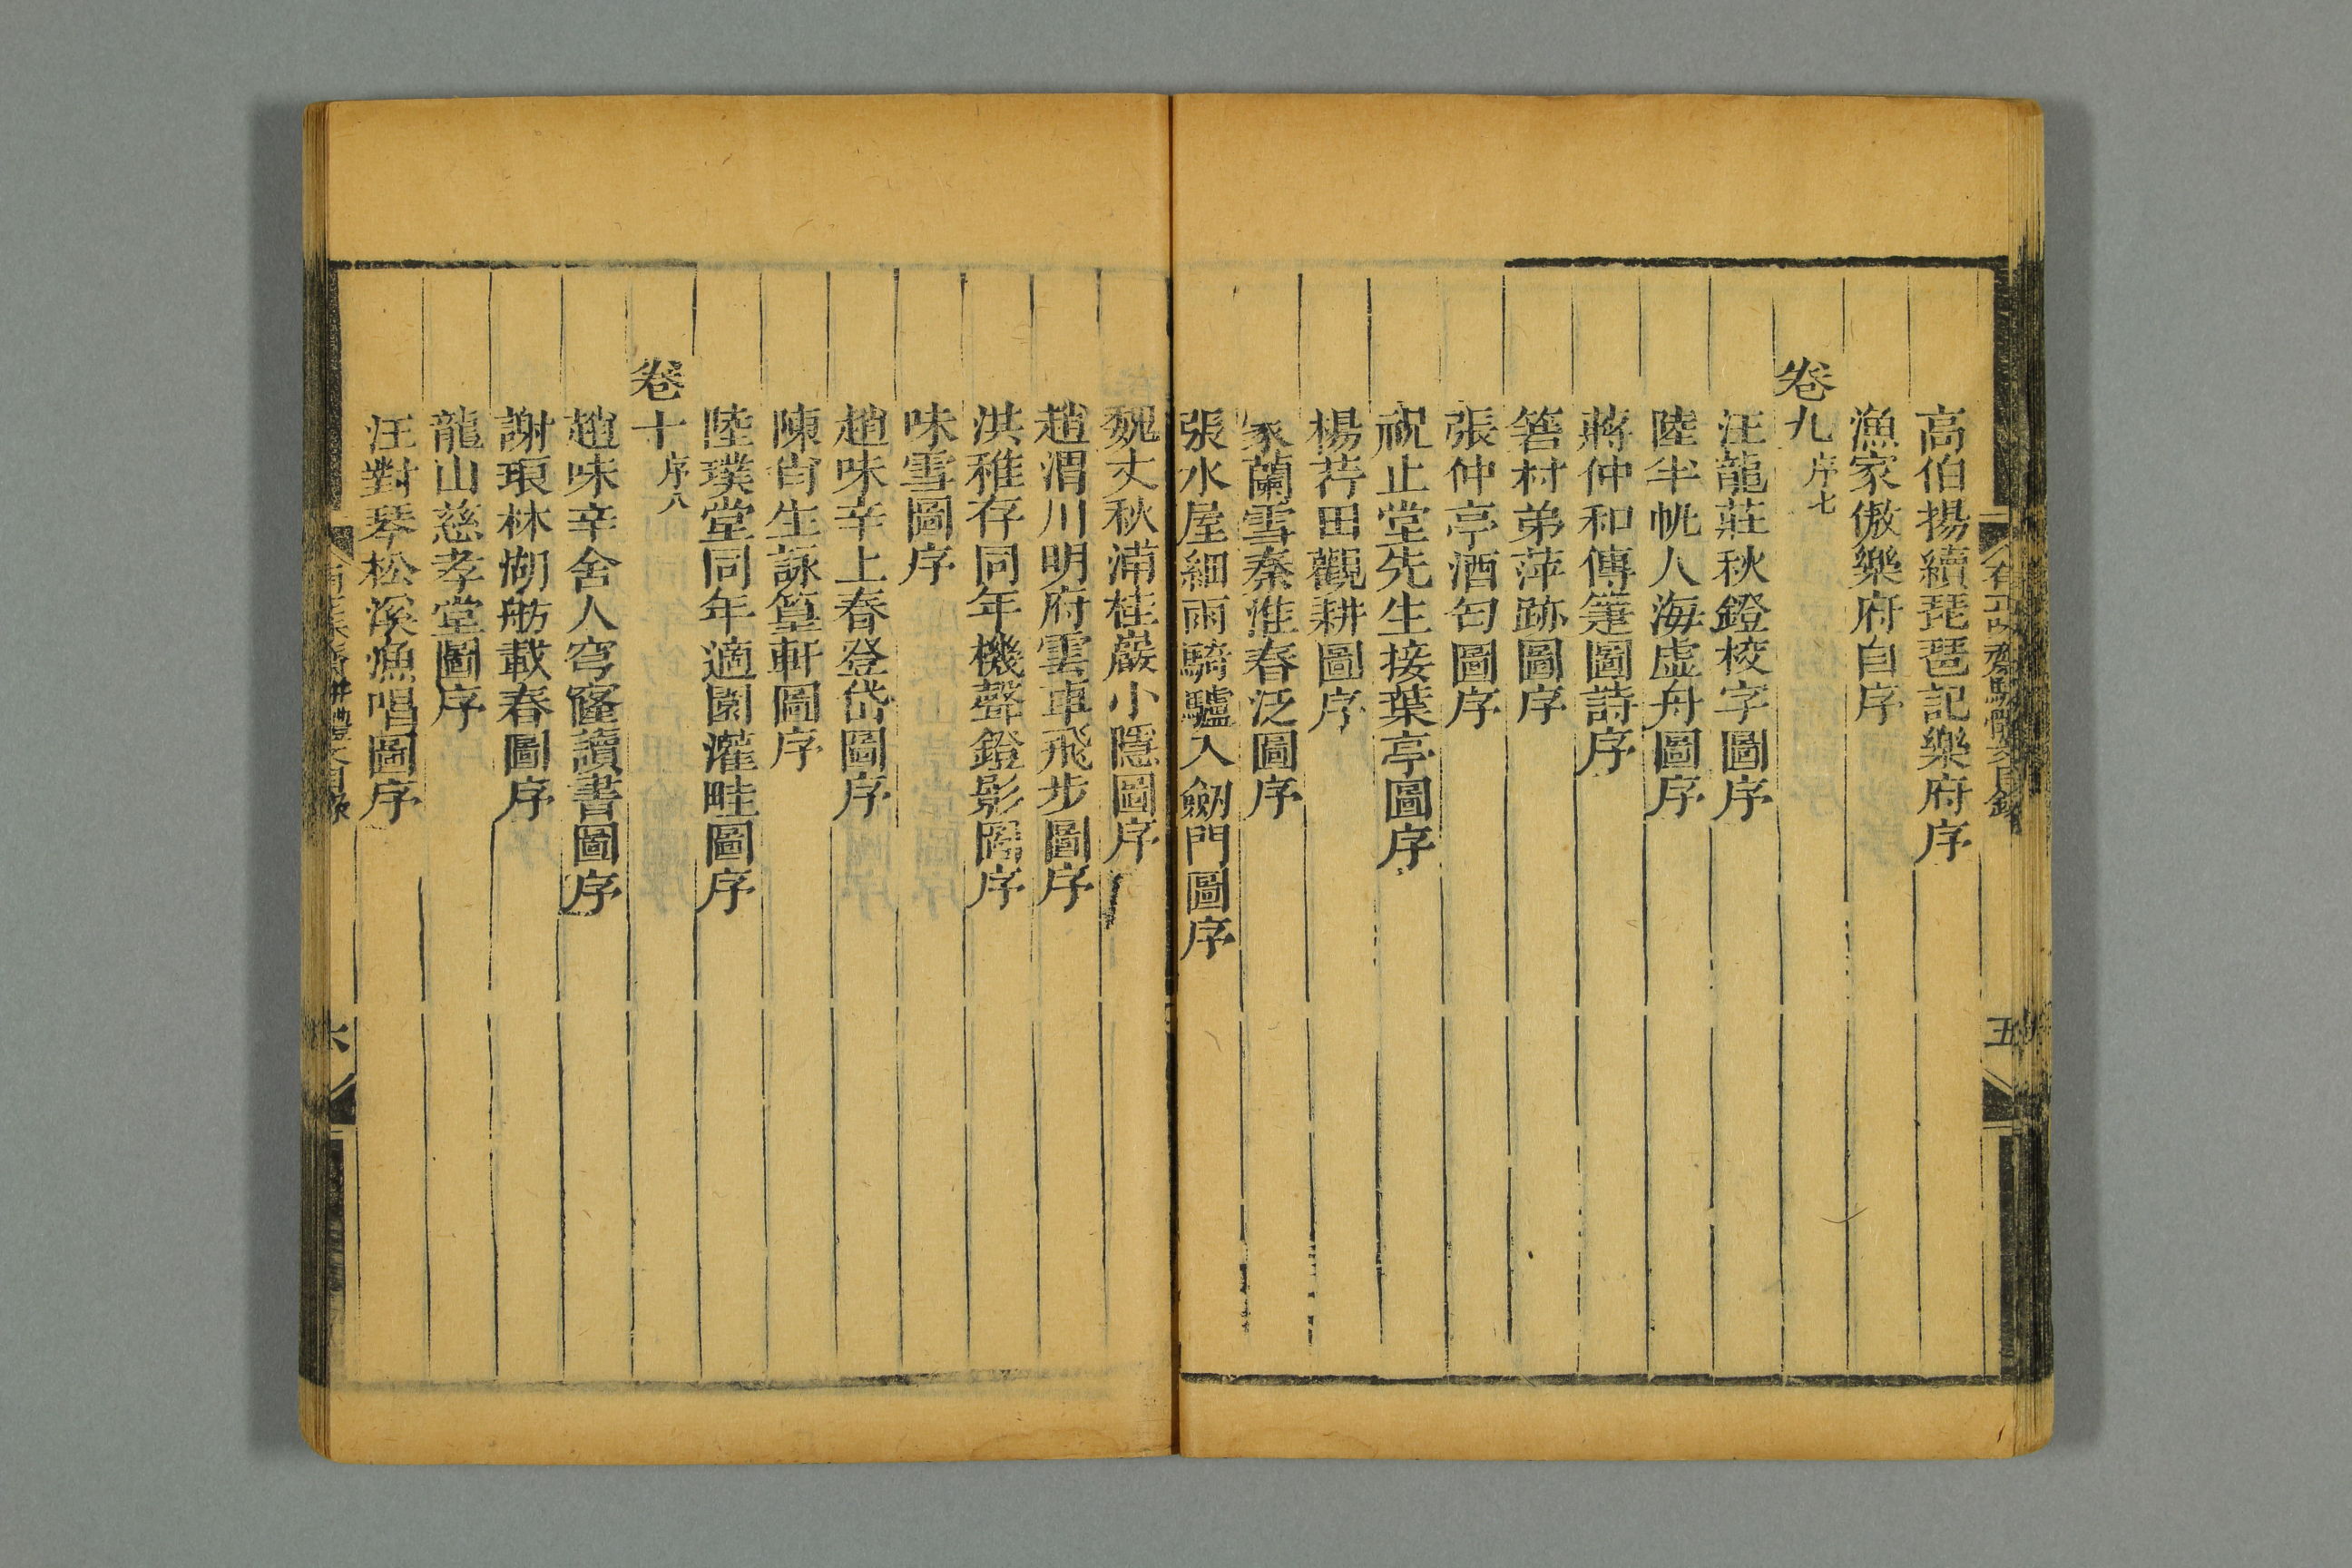 高伯揚續琵琶記樂府序
漁家傲樂府自序
卷九序七
汪龍莊秋鐙校字圖序
陸半帆人海虛舟圖序
蔣仲和傳箑圖詩序
箬村弟萍跡圖序
張仲亭酒匄圖序
祝止堂先生接葉亭圖序
楊芸田觀耕圖序
家蘭雪秦淮春泛圖序
張水屋細雨騎驢入劒門圖序
五
魏丈秋浦桂巖小隱圖序
趙渭川明府雲車飛步圖序
洪稚存同年機聲鐙影圖序
味雪圖序
趙味辛上春登岱圖序
陳肯生詠篁軒圖序
陸璞堂同年適園灌畦圖序
卷十序八
趙味辛舍人穹窿讀書圖序
謝琅林湖舫載春圖序
龍山慈孝堂圖序
汪對琴松溪漁唱圖序
六